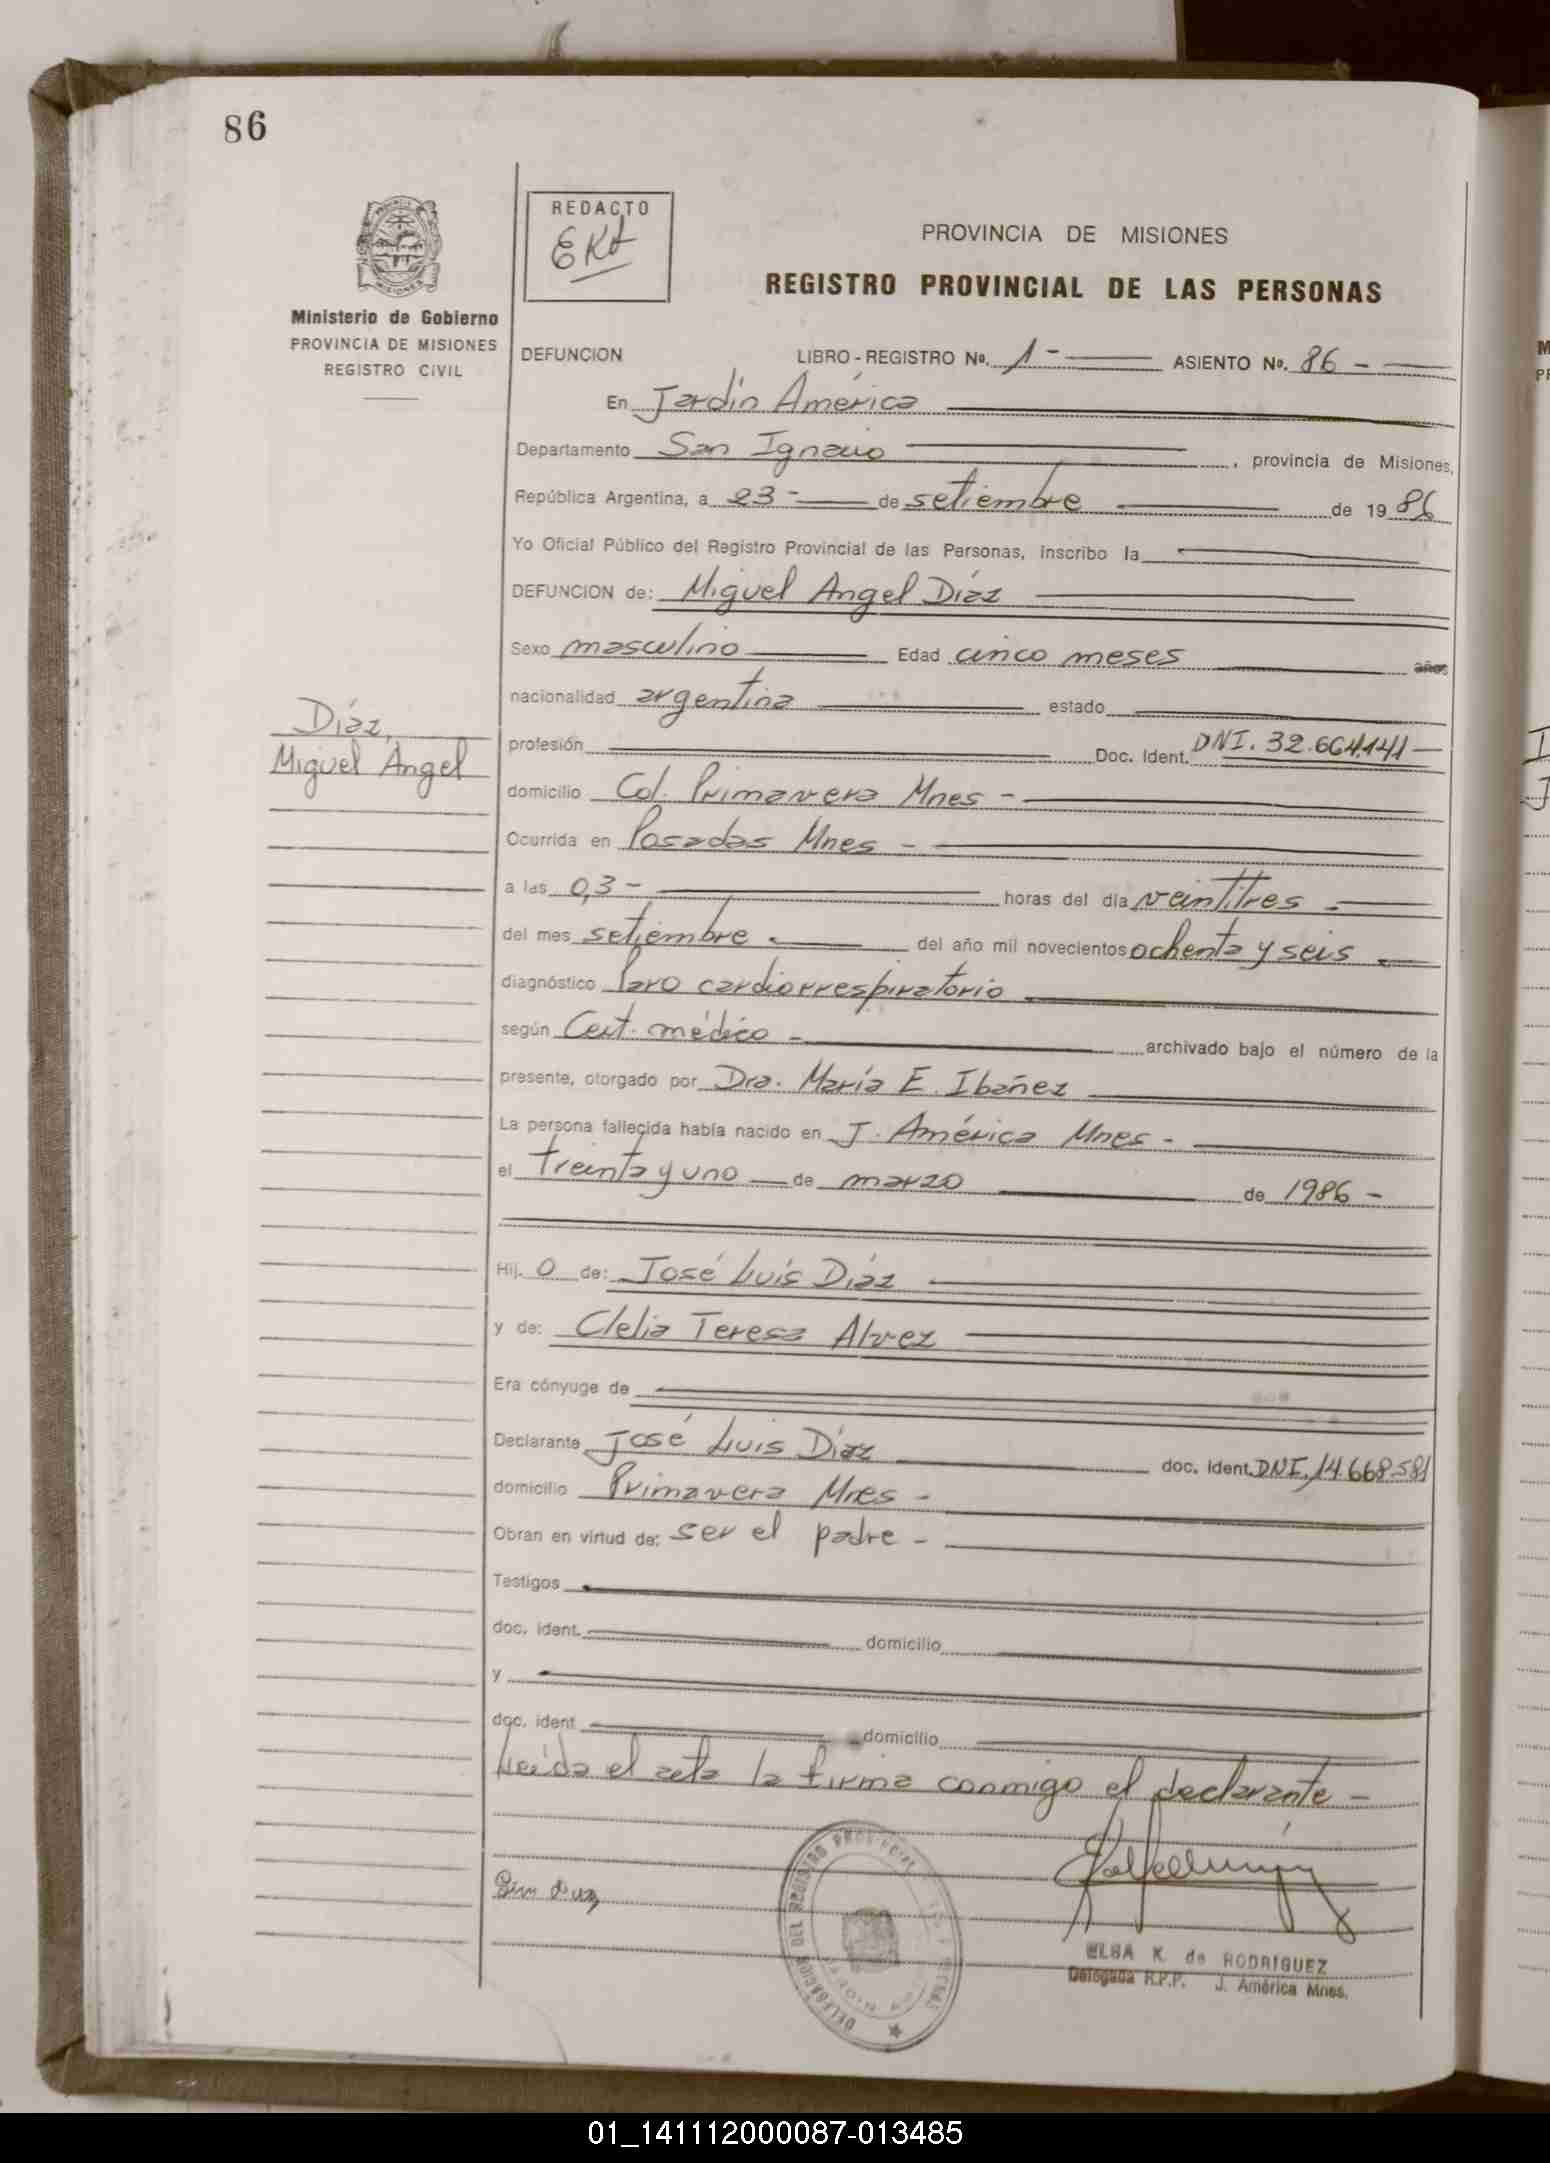 86
REDACTO
EKd
Ministerio de Gobierno
PROVINCIA DE MISIONES
REGISTRO CIVIL
PROVINCIA DE MISIONES
REGISTRO PROVINCIAL DE LAS PERSONAS
DEFUNCION LIBRO - REGISTRO Nº. 1 - ASIENTO Nº. 86 -
En Jardín América
Departamento San Ignacio , provincia de Misiones,
República Argentina, a 23 - de setiembre de 19 86
Yo Oficial Público del Registro Provincial de las Personas, inscribo la
DEFUNCION de: Miguel Angel Díaz
Sexo masculino Edad cinco meses años
nacionalidad argentina estado
Díaz,
Miguel Angel
profesión Doc. Ident. DNI. 32.664.141 -
domicilio Col. Primavera Mnes -
Ocurrida en Posadas Mnes -
a las 0,3 - horas del día veintitres -
del mes setiembre - del año mil novecientos ochenta y seis -
diagnóstico Paro cardiorrespiratorio
según Cert. médico - archivado bajo el número de la
presente, otorgado por Dra. María E. Ibañez
La persona fallecida había nacido en J. América Mnes -
el treinta y uno de marzo de 1986 -
Hij. o de: José Luis Díaz
y de: Clelia Teresa Alvez
Era cónyuge de
Declarante José Luis Díaz doc. ident. DNI. 14.668.581
domicilio Primavera Mnes -
Obran en virtud de: ser el padre -
Testigos
doc. ident. domicilio
y
doc. ident. domicilio
Leída el acta la firma conmigo el declarante -
DELEGACION DEL REGISTRO PROVINCIAL
ELSA K. de RODRIGUEZ
Delegada R.P.P. J. América Mnes.
01_141112000087-013485